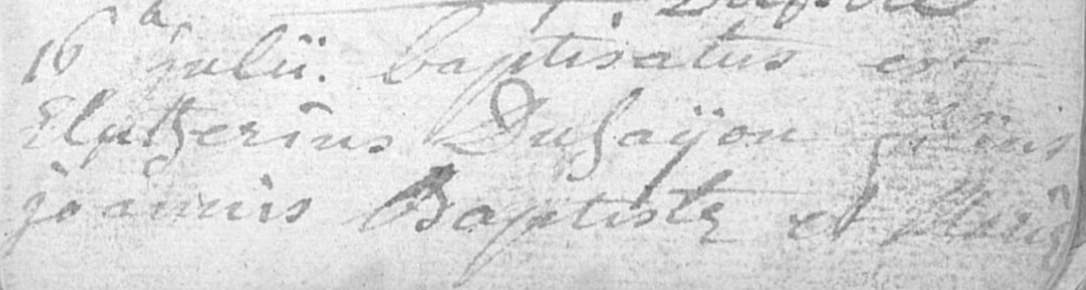 16 a julii. baptisatus est
Elutherius Duhaÿon filius
joannis Baptistæ et Mariæ